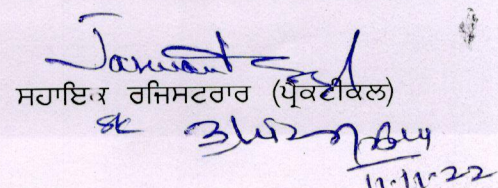 Jaswant Singh
ਸਹਾਇਕ ਰਜਿਸਟਰਾਰ (ਪ੍ਰੈਕਟੀਕਲ)
SK
11.11.22